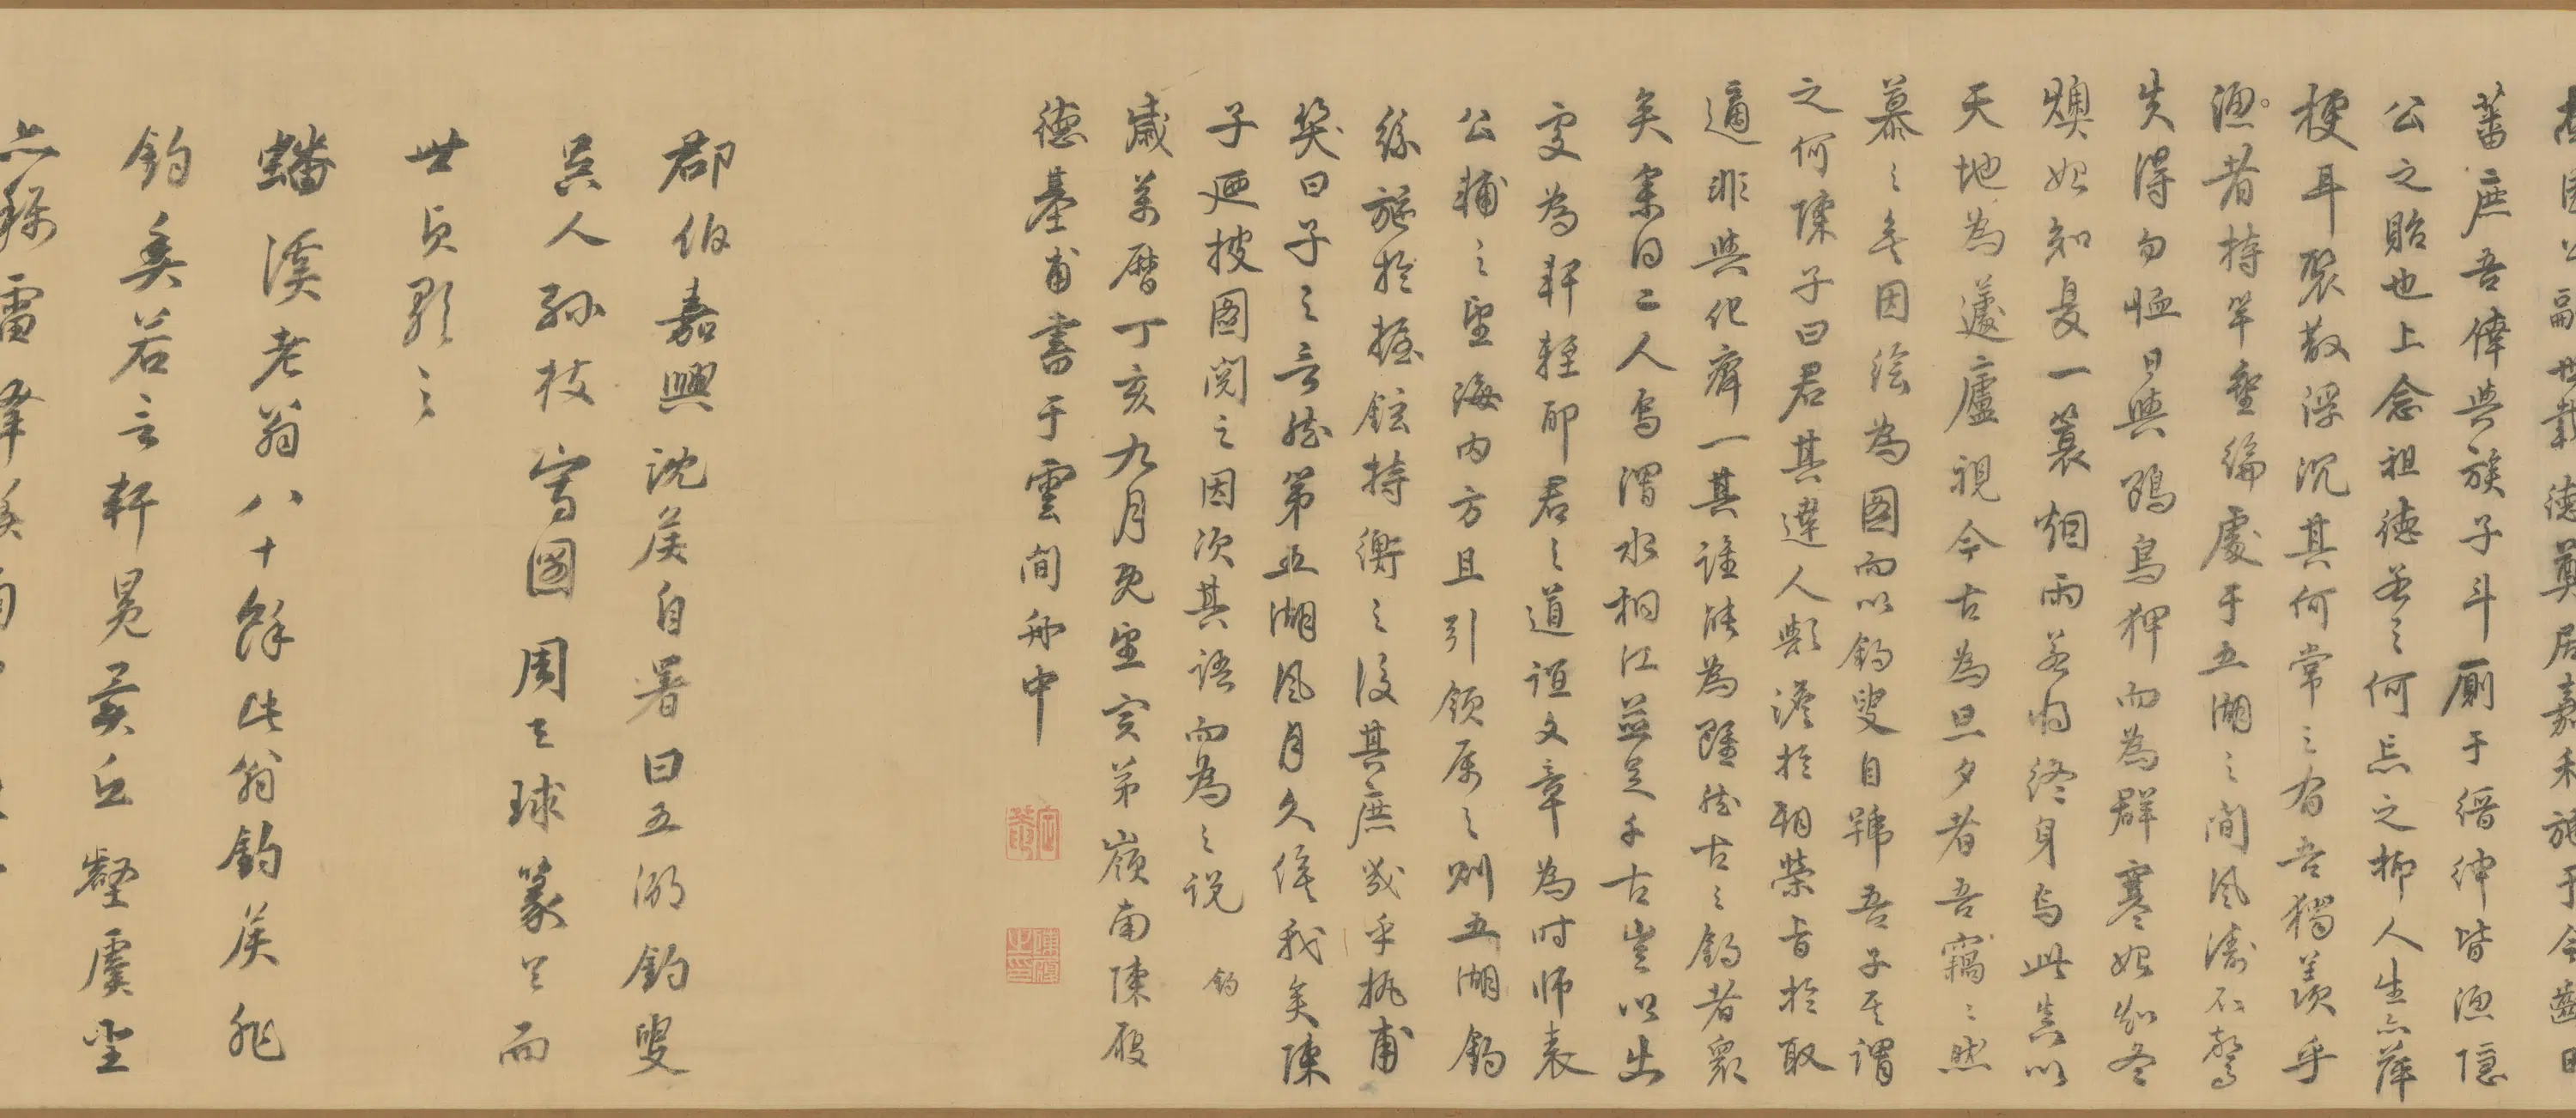 蕃庶吾偉與族子斗厠于縉紳皆漁隱
公之貽也上念祖德吾之何忘之抑人生亦萍
梗耳聚散浮沉其何常之有吾獨羨乎
漁者持竿垂綸處于五湖之間風濤不驚
失得勿恤日與鷗鳥狎而為群寒如知冬
燠如知夏一蓑烟雨若將終身焉此其以
天地為蘧廬視今古為旦夕者吾竊竊然
慕慕矣因繪為图而以釣叟自號吾子其謂
之何陳子曰君其達人歟澹於朝榮旨於取
適非與化齊一其誰能為雖然古之釣者衆
矣余曰二人焉渭水桐江並足千古豈以出
處為軒輊耶君之道誼文章為时师表
公輔之望海內方且引领属之則五湖釣
絲施於握鉉持衡之後其庶幾乎執甫
笑曰子之言然第五湖風月久俟我矣陳
子廼披图閱之因次其語而為之说 釣
歲萬曆丁亥九月既望寅弟嶺南陳履
德基甫書于雲间舟中
郡伯嘉興沈侯自署曰五湖釣叟
吳人孫枝寫圖周天球篆之而
世貞歌之
蟠溪老翁八十餘此翁釣侯非
釣奚若言軒冕冥丘壑虞坐